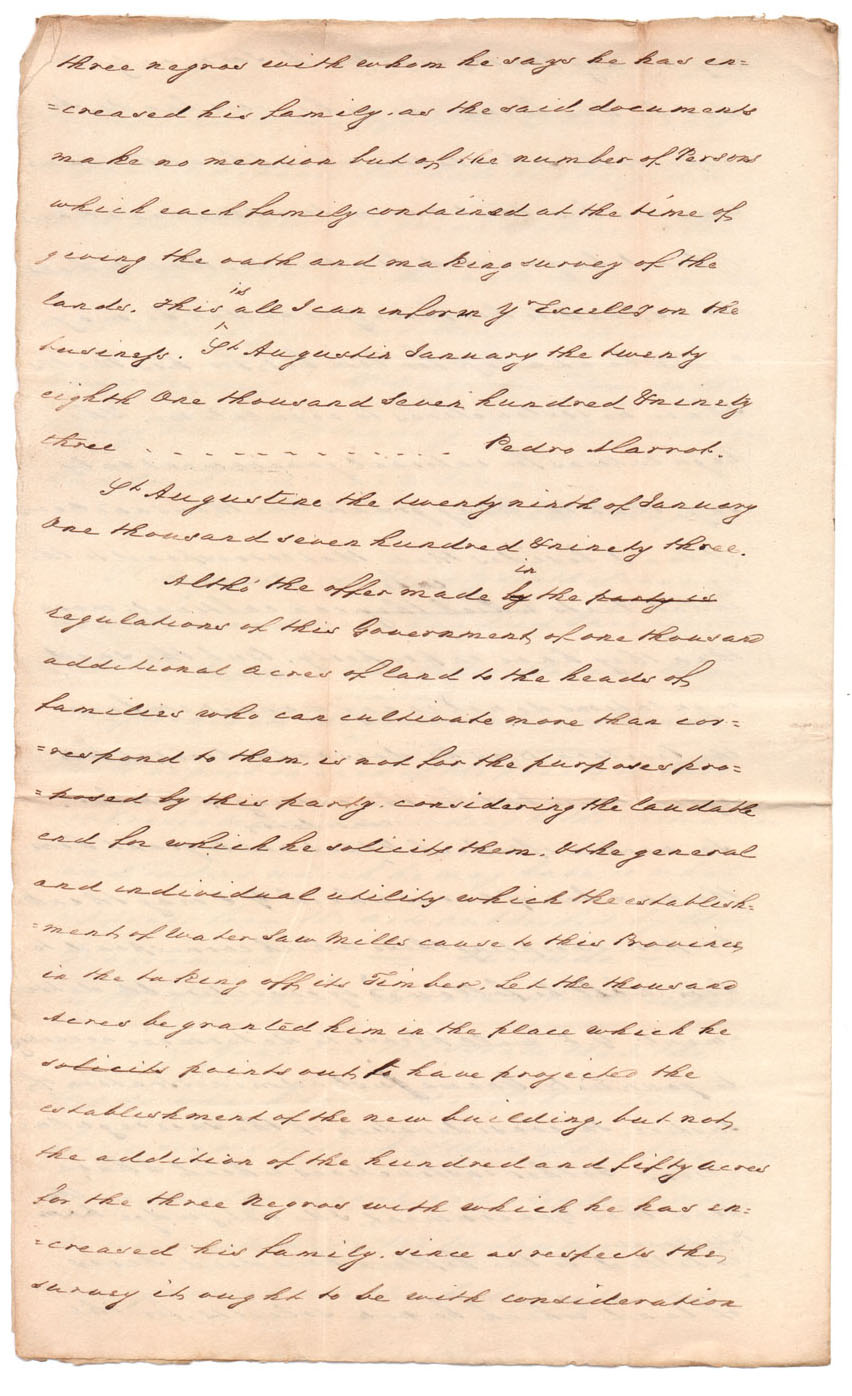 three negros with whom he says he has en=
=creased his family. as the said documents
make no mention but of the number of Persons
which each family contained at the time of
giving the oath and making survey of the
lands. This is all I can inform yr Excelly on the
business. St Augustin January the twenty
eighth One thousand Seven hundred & ninety
three - - - - - - - - - - - - - Pedro Marrot.
St Augustine the twenty ninth of January
One thousand seven hundred & ninety three.
Altho' the offer made by in the party is
regulations of this Government, of one thousand
additional Acres of land to the heads of
families who can cultivate more than cor=
=respond to them, is not for the purposes pro=
=posed by this party. considering the laudable
end for which he solicits them. & the general
and individual utility which the establish=
=ment of Water Saw Mills cause to this Province
in the taking off its Timber. Let the thousand
Acres be granted him in the place which he
solicits points out, to have projected the
establishment of the new building, but not
the addition of the hundred and fifty acres
for the three Negros with which he has en=
=creased his family. since as respects the
survey it ought to be with consideration